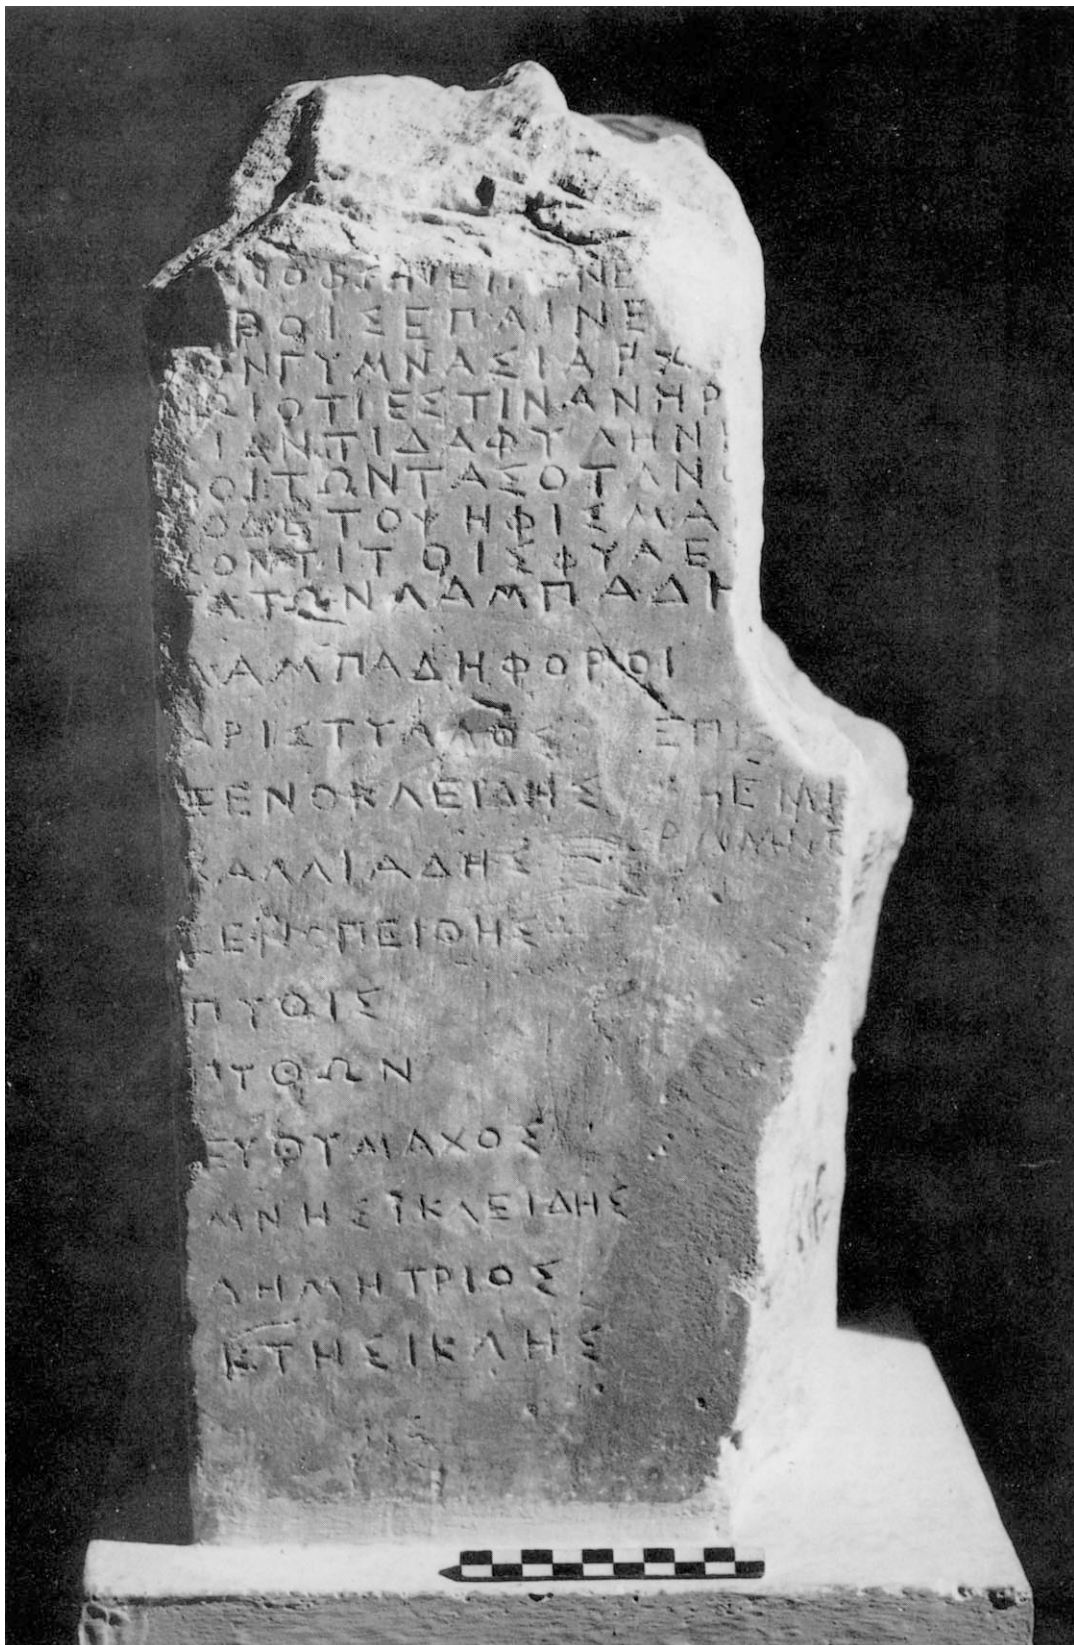 ΝΟΦΩΝΕΙΠΕΝΕ
ΡΟΙΣΕΠΑΙΝΕ
ΟΝΓΥΜΝΑΣΙΑΡΧΟ
ΩΙΟΤΙΕΣΤΙΝΑΝΗΡ
ΙΑΝΤΙΔΑΦΥΛΗΝ
ΟΙΤΩΝΤΑΣΟΤΑΝ
ΟΔΕΤΟΨΗΦΙΣΜΑ
ΟΝΤΙΤΟΙΣΦΥΛΕ
ΑΤΩΝΛΑΜΠΑΔΗ
ΛΑΜΠΑΔΗΦΟΡΟΙ
ΑΡΙΣΤΥΛΛΟΣ ΕΠΙΣ
ΞΕΝΟΚΛΕΙΔΗΣ
ΚΑΛΛΙΑΔΗΣ
ΞΕΝΟΠΕΙΘΗΣ
ΠΥΘΙΣ
ΙΤΘΩΝ
ΕΥΘΥΜΑΧΟΣ
ΜΝΗΣΙΚΛΕΙΔΗΣ
ΔΗΜΗΤΡΙΟΣ
ΚΤΗΣΙΚΛΗΣ